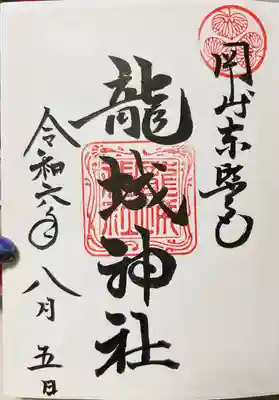 岡崎東照宮
龍城神社
令和六年
八月五日